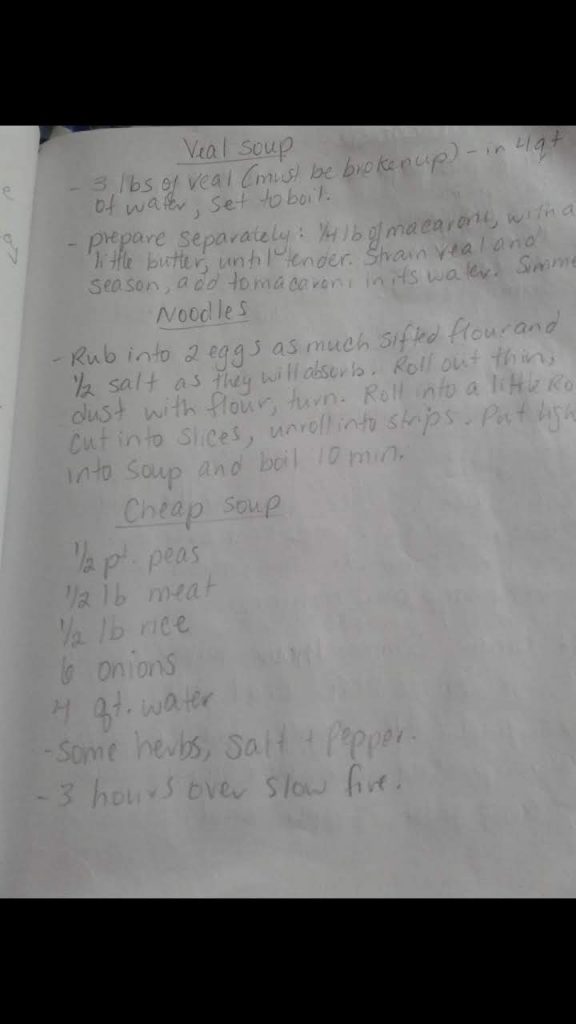 Veal soup
- 3 lbs of veal (must be broken up) - in 4 qt
of water, set to boil.
- prepare separately: 1/4 lb of macaroni, with a
little butter, until tender. Strain veal and
season, add to macaroni in its water. Simme
Noodles
- Rub into 2 eggs as much sifted flour and
1/2 salt as they will absorb. Roll out thin,
dust with flour, turn. Roll into a little Ro
Cut into slices, unroll into strips. Put ligh
into soup and boil 10 min.
Cheap soup
1/2 pt. peas
1/2 lb meat
1/2 lb rice
6 onions
4 qt. water
- Some herbs, salt + Pepper.
- 3 hours over slow fire.